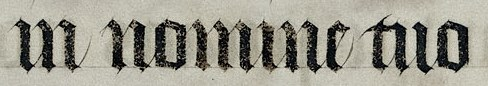 in nomine tuo